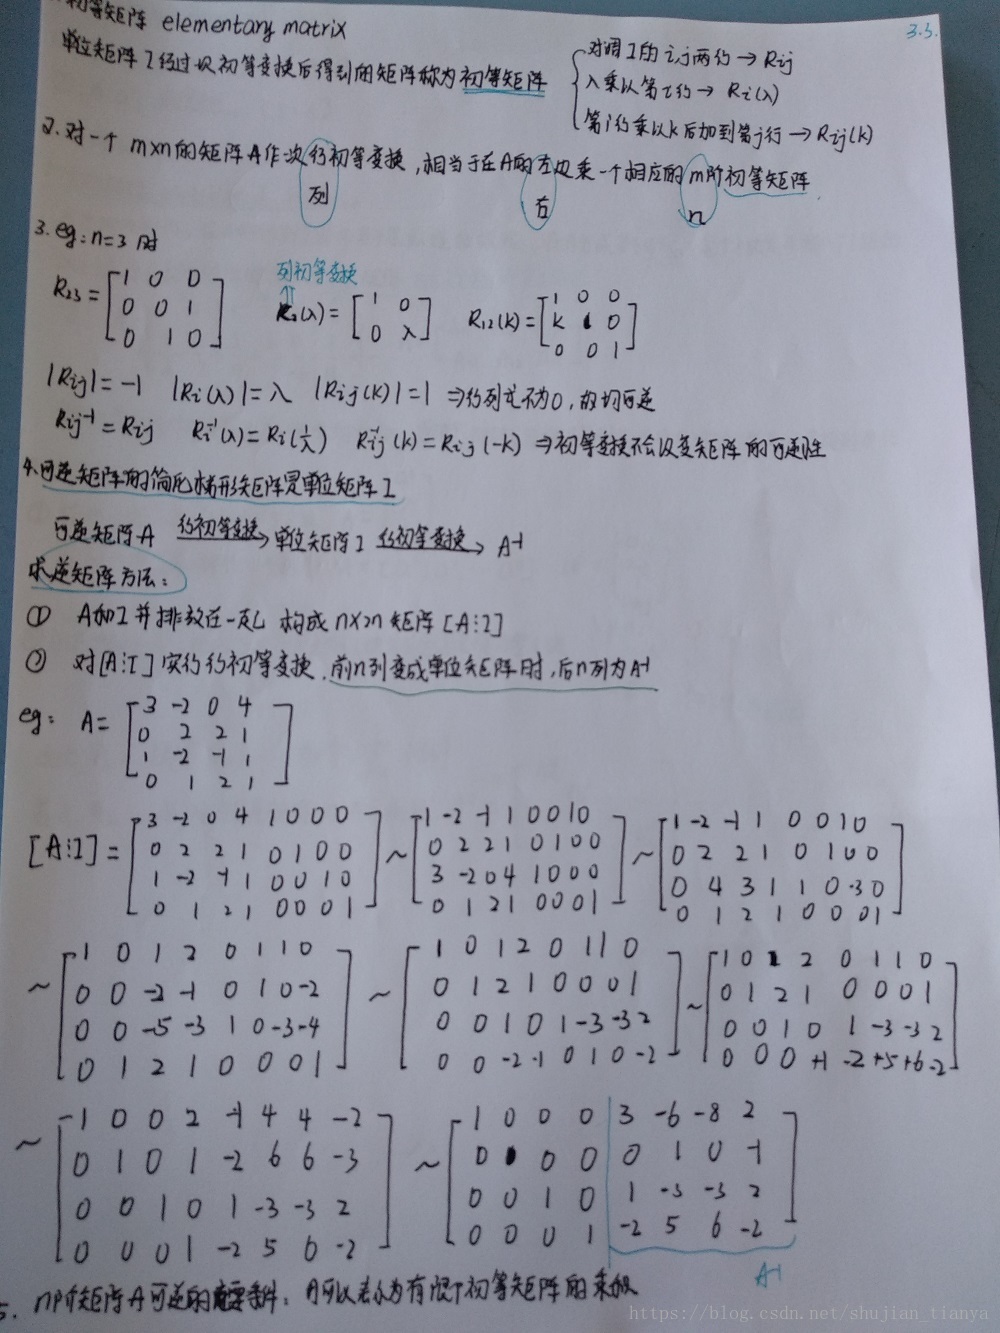 初等矩阵 elementary matrix
3.3.
单位矩阵I经过一次初等变换后得到的矩阵称为初等矩阵
对调I的i,j两行→Rij
λ乘以第i行→Ri(λ)
第i行乘以k后加到第j行→Rij(k)
2.对一个m×n的矩阵A作一次行初等变换,相当于在A的左边乘一个相应的m阶初等矩阵
列 右 n
3.eg:n=3时
列初等变换
R23= [1 0 0 R2(λ)= [1 0 R12(k)= [1 0 0
0 0 1 0 λ] k 1 0
0 1 0] 0 0 1]
|Rij|=-1 |Ri(λ)|=λ |Rij(k)|=1 ⇒行列式不为0,故均可逆
Rij⁻¹=Rij Ri⁻¹(λ)=Ri(1/λ) Rij⁻¹(k)=Rij(-k) ⇒初等变换不会改变矩阵的可逆性
4.可逆矩阵的简化梯形矩阵是单位矩阵I
可逆矩阵A 行初等变换→ 单位矩阵I 行初等变换→ A⁻¹
求逆矩阵方法:
① A和I并排放在一起 构成n×2n矩阵[A⋮I]
② 对[A⋮I]实行行初等变换,前n列变成单位矩阵时,后n列为A⁻¹
eg: A= [3 -2 0 4
0 2 2 1
1 -2 -1 1
0 1 2 1]
[A⋮I]= [3 -2 0 4 1 0 0 0 ~ [1 -2 -1 1 0 0 1 0 ~ [1 -2 -1 1 0 0 1 0
0 2 2 1 0 1 0 0 0 2 2 1 0 1 0 0 0 2 2 1 0 1 0 0
1 -2 -1 1 0 0 1 0 3 -2 0 4 1 0 0 0 0 4 3 1 1 0 -3 0
0 1 2 1 0 0 0 1] 0 1 2 1 0 0 0 1] 0 1 2 1 0 0 0 1]
~ [1 0 1 2 0 1 1 0 ~ [1 0 1 2 0 1 1 0 ~ [1 0 1 2 0 1 1 0
0 0 -2 -1 0 1 0 -2 0 1 2 1 0 0 0 1 0 1 2 1 0 0 0 1
0 0 -5 -3 1 0 -3 -4 0 0 1 0 1 -3 -3 2 0 0 1 0 1 -3 -3 2
0 1 2 1 0 0 0 1] 0 0 -2 -1 0 1 0 -2] 0 0 0 +1 -2 +5 +6 -2]
~ [1 0 0 2 -1 4 4 -2 ~ [1 0 0 0 3 -6 -8 2
0 1 0 1 -2 6 6 -3 0 1 0 0 0 1 0 -1
0 0 1 0 1 -3 -3 2 0 0 1 0 1 -3 -3 2
0 0 0 1 -2 5 6 -2] 0 0 0 1 -2 5 6 -2]
A⁻¹
5. n阶矩阵A可逆的充要条件:A可以表示为有限个初等矩阵的乘积
https://blog.csdn.net/shujian_tianya